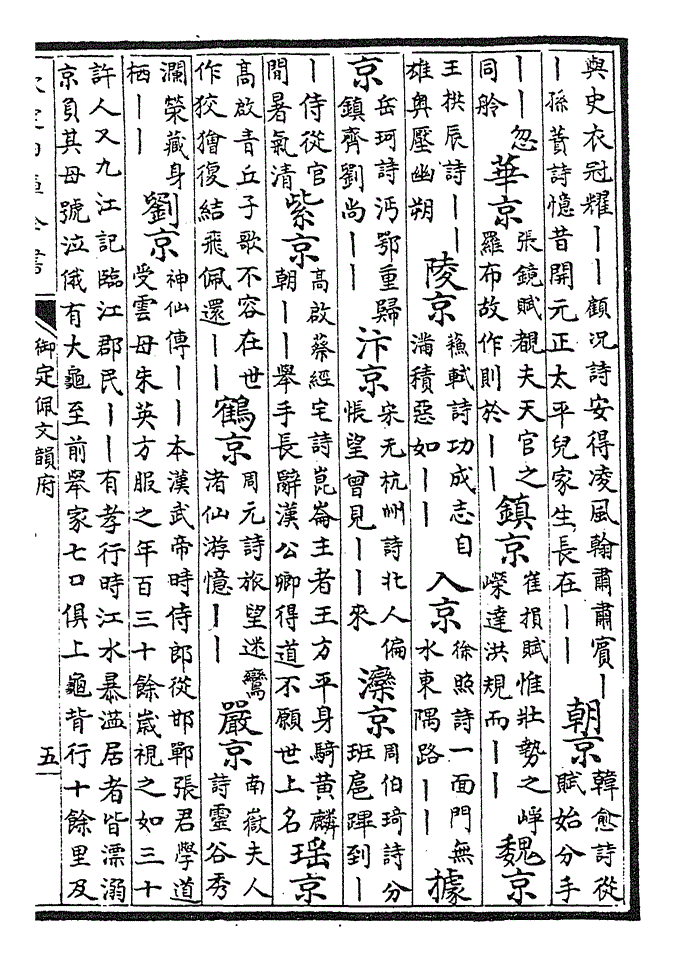 與史衣冠耀丨丨顧況詩安得凌風翰肅肅賓丨
丨孫蕡詩憶昔開元正太平兒家生長在丨丨
朝京
韓愈詩從
賦始分手
丨丨忽
同舲
華京
張鏡賦覩夫天官之
羅布故作則於丨丨
鎮京
崔損賦惟壯勢之崢
嶸達洪規而丨丨
魏京
王拱辰詩丨丨
雄輿壓幽朔
陵京
蘇軾詩功成志自
滿積惡如丨丨
入京
徐照詩一面門無
水東隅路丨丨
據
京
岳珂詩沔鄂重歸
鎮齊劉尚丨丨
汴京
宋无杭州詩北人偏
悵望曾見丨丨來
灤京
周伯琦詩分
班扈蹕到丨
丨侍從官
閒暑氣清
紫京
高啟蔡經宅詩崑崙主者王方平身騎黃麟
朝丨丨舉手長辭漢公卿得道不願世上名
瑤京
高啟青丘子歌不容在世
作狡獪復結飛佩還丨丨
鶴京
周元詩旅望迷鸞
渚仙游憶丨丨
嚴京
南嶽夫人
詩靈谷秀
瀾榮藏身
栖丨丨
劉京
神仙傳丨丨本漢武帝時侍郎從邯鄲張君學道
受雲母朱英方服之年百三十餘歲視之如三十
許人又九江記臨江郡民丨丨有孝行時江水暴溢居者皆漂溺
京負其母號泣俄有大龜至前舉家七口俱上龜背行十餘里及
欽定四庫全書
御定佩文韻府
五